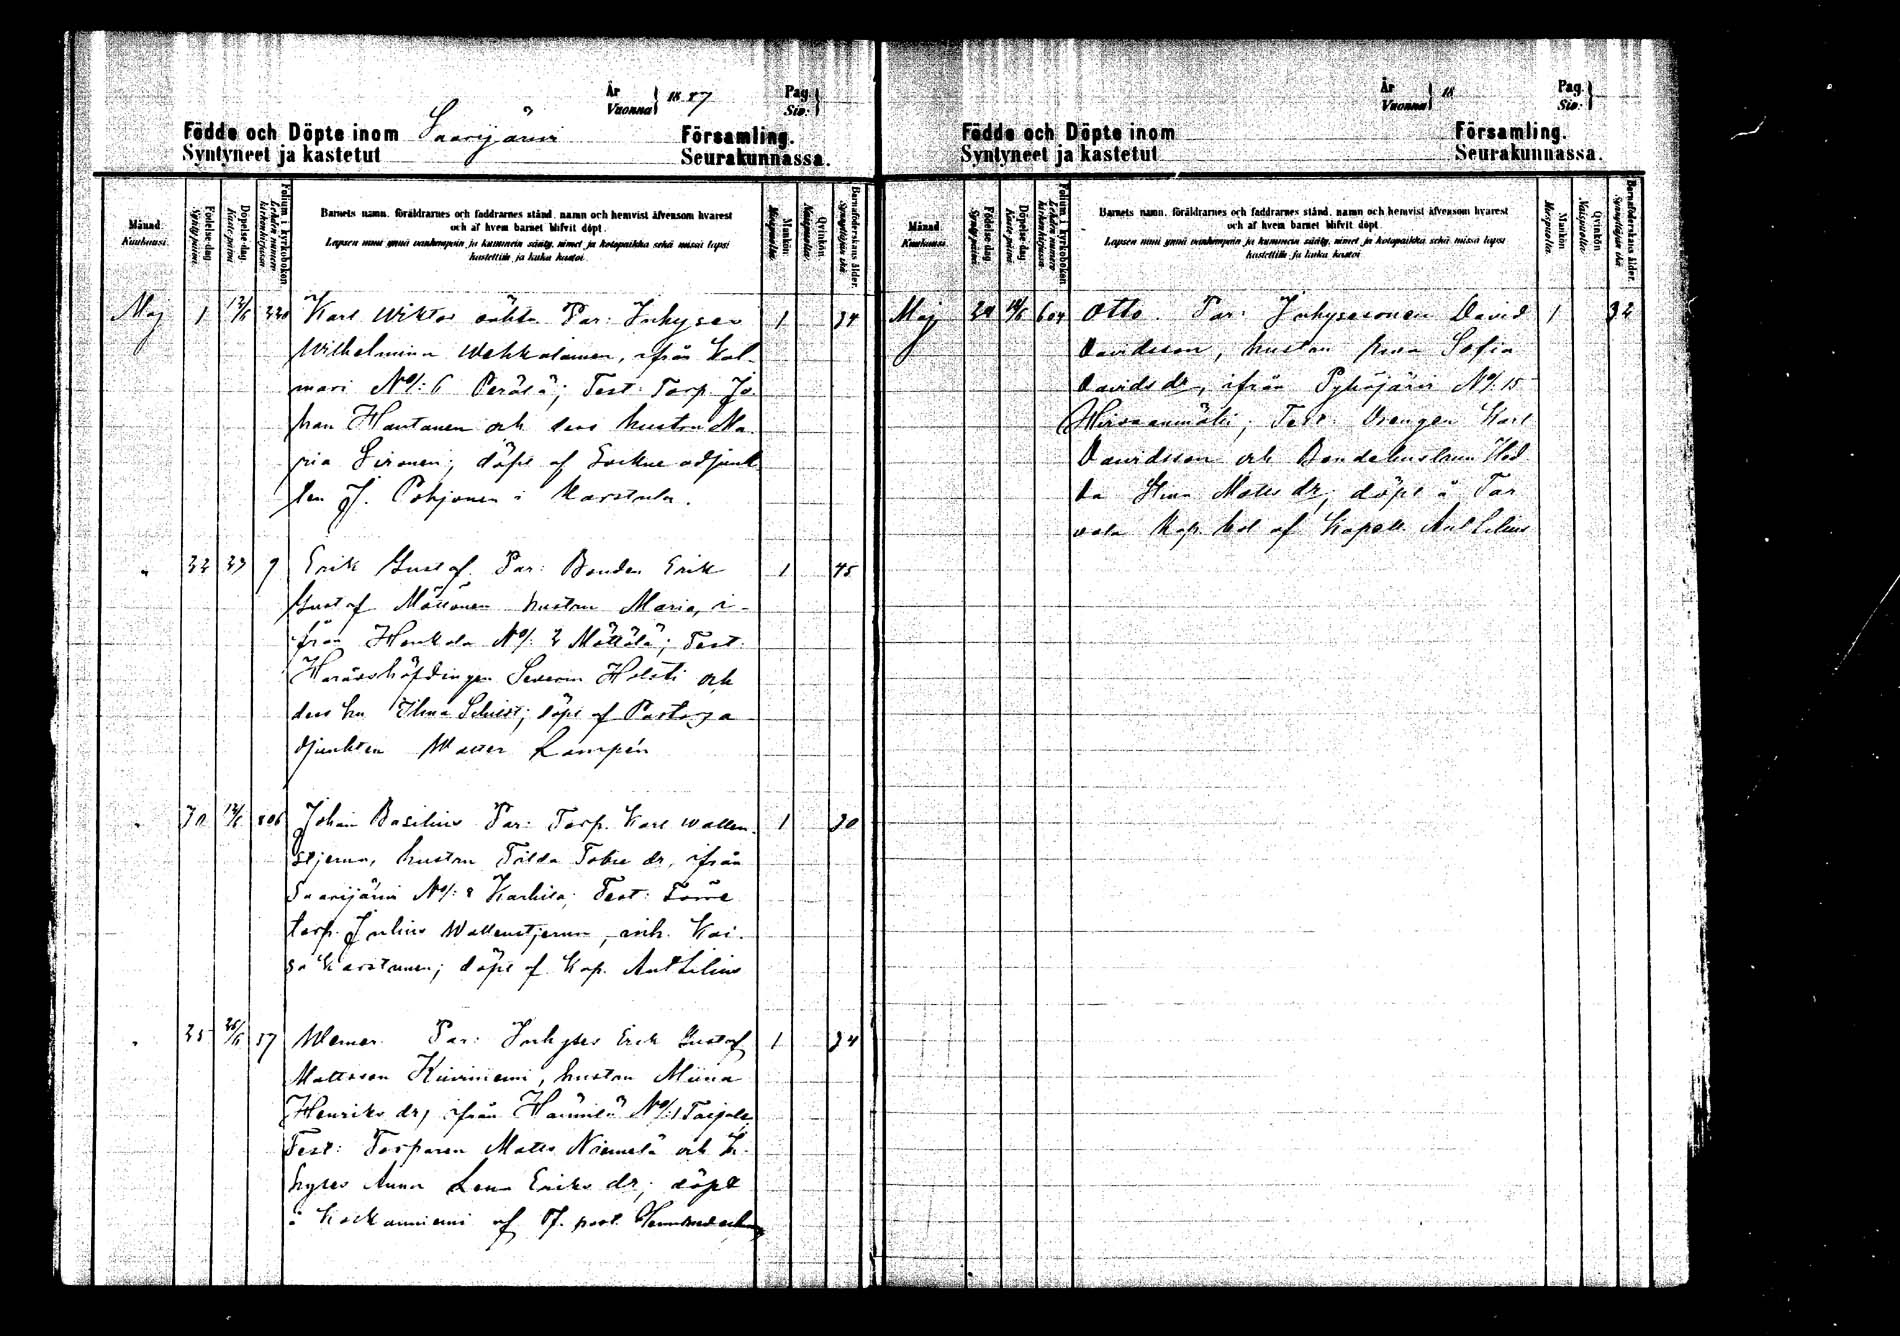 År
Vuonna } 1887
Pag.
Siv. }
Födde och Döpte inom Saarijärvi Församling.
Syntyneet ja kastetut Seurakunnassa.
Månad.
Kuukausi.
Födelse-dag.
Syntymäpäivä.
Döpelse-dag.
Kaste-päivä.
Folium i kyrkoboken
Lehden numero kirkonkirjassa
Barnets namn, föräldrarnes och faddrarnes stånd, namn och hemvist äfvensom hvarest
och af hvem barnet blifvit döpt.
Lapsen nimi ynnä vanhempain ja kummein sääty, nimet ja kotopaikka sekä missä lapsi
kastettiin ja kuka kastoi
Mankön.
Miespuolta.
Qvinkön.
Naispuolta.
Barnaföderskans ålder.
Synnyttäjän ikä.
Maj 1 12/6 220 Karl Wiktor oäkta Par: Inhyses 1 34
Wilhelmina Wehkalainen, ifrån Kal-
mari No/: 6 Perälä; Test: Torp. Jo-
han Hautanen och dess hustru Ma-
ria Sironen; döpt af Sockne adjunk-
ten J. Pohjonen i Karstula.
" 22 23 9 Erik Gustaf. Par: Bonden Erik 1 45
Gustaf Möttönen hustru Maria, i-
från Henkola No/: 2 Möttölä; Test:
Häradshöfdingen Severin Holsti och
dess fru Elma; döpt af Pastorsa-
djunkten Walter Lampén
" 30 12/6 806 Johan Basilius Par: Torp. Karl Wallen- 1 30
stjerna, hustru Tilda Tobie dr, ifrån
Saarijärvi No/: 8 Karhila; Test:
torp. Julius Wallenstjerna, inh. Kai-
sa Karstunen; döpt af Kap. Ant Lilius
" 25 26/6 57 Werner Par: Inhyses Erik Gustaf 1 34
Mattsson Kiiviniemi, hustru Miina
Henriks dr, ifrån Hännilä No/: 1 Taipale
Test: Torparen Matts Niemelä och In-
hyses Anna Lena Eriks dr; döpt
i Kockanniemi af Tf. past.
År
Vuonna } 18
Pag.
Siv. }
Födde och Döpte inom Församling.
Syntyneet ja kastetut Seurakunnassa.
Månad.
Kuukausi.
Födelse-dag.
Syntymäpäivä.
Döpelse-dag.
Kaste-päivä.
Folium i kyrkoboken
Lehden numero kirkonkirjassa
Barnets namn, föräldrarnes och faddrarnes stånd, namn och hemvist äfvensom hvarest
och af hvem barnet blifvit döpt.
Lapsen nimi ynnä vanhempain ja kummein sääty, nimet ja kotopaikka sekä missä lapsi
kastettiin ja kuka kastoi
Mankön
Miespuolta.
Qvinkön
Naispuolta.
Barnaföderskans ålder.
Synnyttäjän ikä.
Maj 24 604 Otto. Par: Inhysesonen David 1 32
Davidsson, hustru Sofia
Davids dr, ifrån Pyhäjärvi No/: 15
Hirvaanmäki; Test: Drengen Karl
Davidsson och Bondehustrun Hed-
da Stina Matts dr; döpt å Tar
vala Kap. bol af Kapell. Ant Lilius